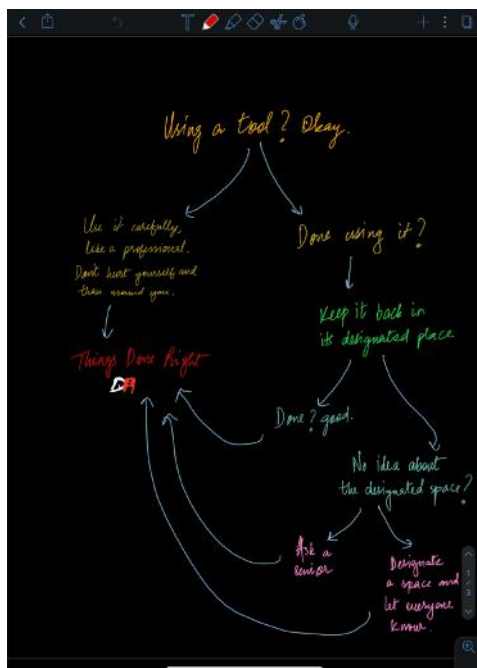 Using a tool? Okay.
Use it carefully,
like a professional.
Don't hurt yourself and
those around you.
Done using it?
Keep it back in
its designated place
Things Done Right
DR
Done? good.
No idea about
the designated space?
Ask a
senior
Designate
a space and
let everyone
know.
1
/
3